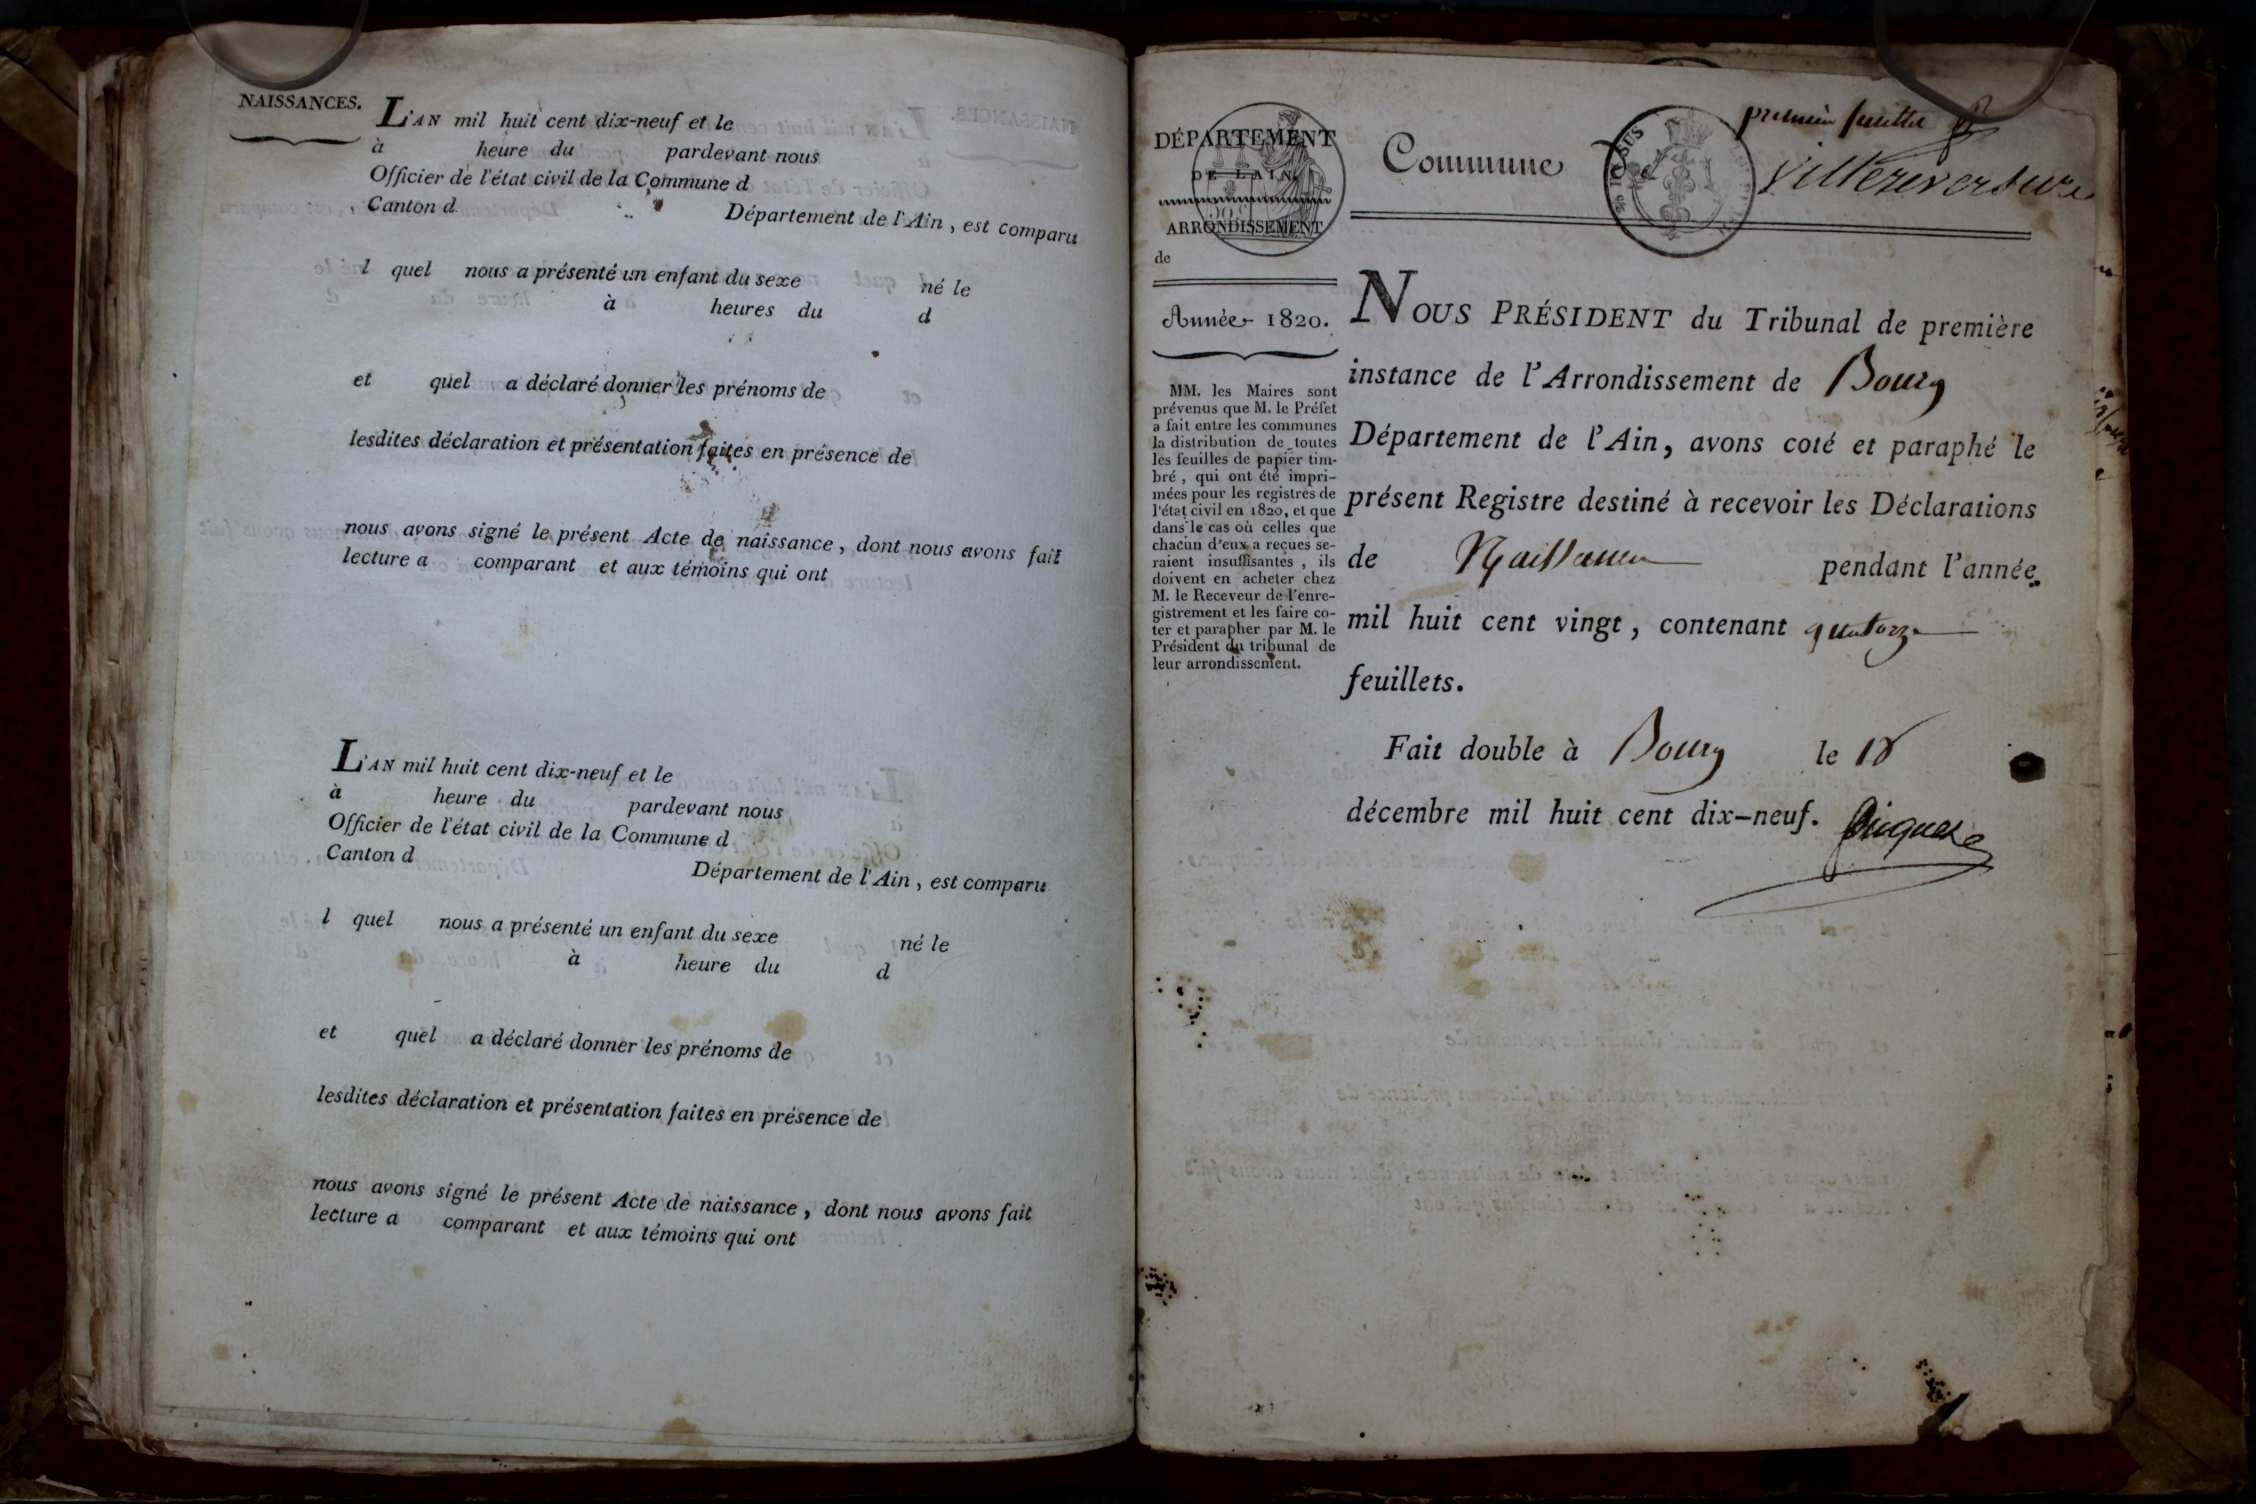 NAISSANCES.
L'AN mil huit cent dix-neuf et le
à heure du pardevant nous
Officier de l'état civil de la Commune d
Canton d Département de l'Ain, est comparu
l quel nous a présenté un enfant du sexe né le
à heures du d
et quel a déclaré donner les prénoms de
lesdites déclaration et présentation faites en présence de
nous avons signé le présent Acte de naissance, dont nous avons fait
lecture a comparant et aux témoins qui ont
L'AN mil huit cent dix-neuf et le
à heure du pardevant nous
Officier de l'état civil de la Commune d
Canton d Département de l'Ain, est comparu
l quel nous a présenté un enfant du sexe né le
à heure du d
et quel a déclaré donner les prénoms de
lesdites déclaration et présentation faites en présence de
nous avons signé le présent Acte de naissance, dont nous avons fait
lecture a comparant et aux témoins qui ont
premier feuillet
DÉPARTEMENT
DE L'AIN
ARRONDISSEMENT
de
Année 1820.
MM. les Maires sont
prévenus que M. le Préfet
a fait entre les communes
la distribution de toutes
les feuilles de papier tim-
bré, qui ont été impri-
mées pour les registres de
l'état civil en 1820, et que
dans le cas où celles que
chacun d'eux a reçues se-
raient insuffisantes, ils
doivent en acheter chez
M. le Receveur de l'enre-
gistrement et les faire co-
ter et parapher par M. le
Président du tribunal de
leur arrondissement.
Commune de Villereversure
EN SUS
NOUS PRÉSIDENT du Tribunal de première
instance de l'Arrondissement de Bourg
Département de l'Ain, avons coté et paraphé le
présent Registre destiné à recevoir les Déclarations
de Naissances pendant l'année
mil huit cent vingt, contenant quatorze
feuillets.
Fait double à Bourg le 18
décembre mil huit cent dix-neuf.